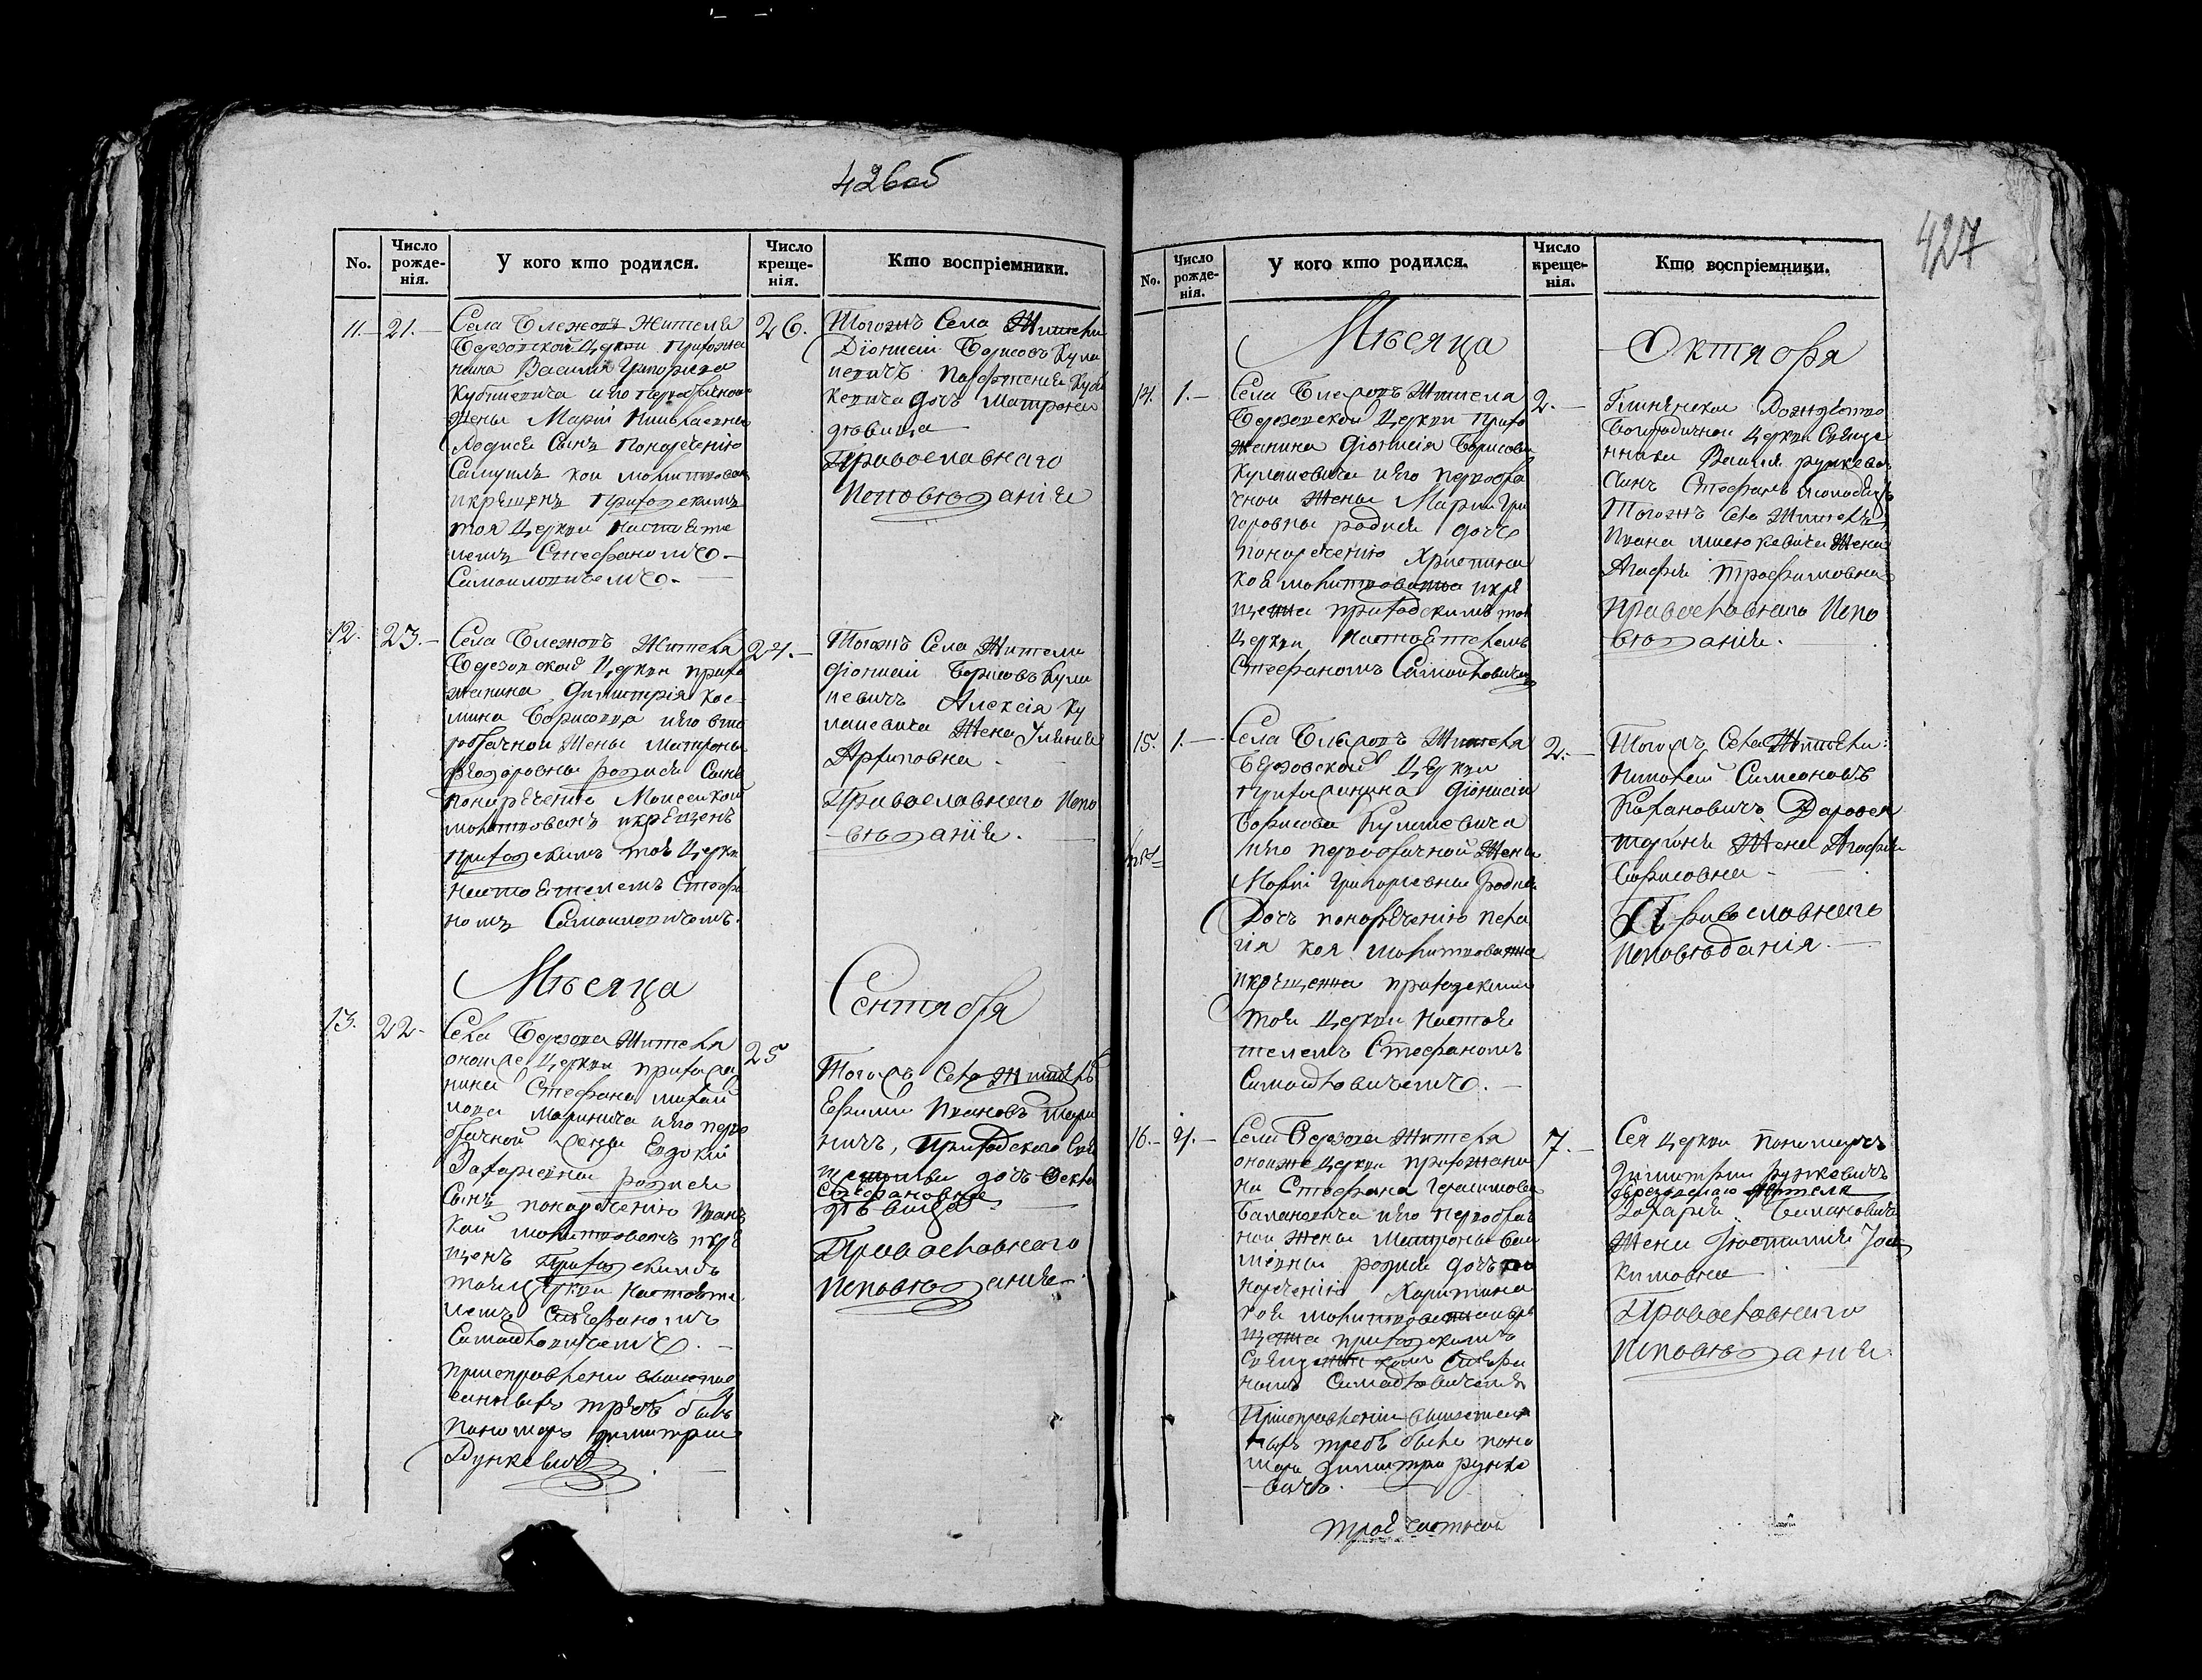 426об
No.
Число рожденія.
У кого кто родился.
Число крещенія.
Кто воспріемники.
11.
21.
Села Блежовъ Жителя
Березовской Церкви Прихожа
нина Василія Григорієва
Кубишевича и его первобрачной
Жены Маріи
Родися Сынъ Понаречению
Самуилъ кои молитвован
икрещенъ Приходскимъ
тоя Церкви Настояте
лемъ Стефаномъ
Самоиловичемъ.
26.
Тогожъ Села Жители
Діонисій Борисовъ Кула
кевича дочъ Матрона
дѣвица
Православнаго
Исповѣданія
12.
23.
Села Блежовъ Жителя
Березовской Церкви прихо
жанина Димитрія Кос
мина Борисова и его вто
робрачной Жены Матроны
Феодоровны родися Сынъ
понаречению Моисей кой
молитвованъ икрещенъ
Приходскимъ тоя Церкви
Настоятелемъ Стефа
номъ Самоиловичемъ.
24.
Тогожъ Села Жители
Діонисій Борисовъ Кула
невичъ Алексія Ку
Жена Улянія
Архиповна
Православнаго Испо
вѣданія.
Мѣсяца
Сентября
13.
22.
Села Березова Жителя
оноя же Церкви прихожа
нина Стефана Михай
лова Маринича и его перво
брачной жены Евдокіи
Захаріевны родися
Сынъ понаречению Иванъ
кой молитвованъ икре
щенъ Приходскимъ
тоя Церкви Настояте
лемъ Стефаномъ
Самойловичемъ.
Приисправлении вышепис
санныхъ требъ былъ
Пономарь Димитрій
Рункевичъ
25
Тогожъ Села Житель
Ефимій Ивановъ Мари
ничъ, Приходскаго Свя
щенника дочъ Фекла
Стефановна
дѣвица
Православнаго
Исповѣданія
427
No.
Число рожденія.
У кого кто родился.
Число крещенія.
Кто воспріемники.
Мѣсяца
Октября
14.
1.
Села Блежовъ Жителя
Березовской Церкви Прихо
жанина Діонисія Борисова
Куланевича и его первобра
чной Жены Маріи Гри
горовны родися дочъ
понаречению Христина
коя молитвованна икре
щенна приходскимъ тоя
Церкви Настоятелемъ
Стефаномъ Самойловичемъ
2.
Глинянской Рождество
Богородичной Церкви Свяще
нника Василія Рункевич
Сынъ Стефанъ молодецъ
Тогожъ Села Жителя
Ивана Жена
Агафія Трофимовна
Православнаго Испо
вѣданія.
15.
1.
Села Блежовъ Жителя
Березовской Церкви
Прихожанина Діонисія
Борисова Куланевича
и его первобрачной Жены
Маріи Григорьевны родися
Дочъ понаречению Пела
гія коя молитвованна
икрещенна приходскимъ
тоя Церкви Настоя
телемъ Стефаномъ
Самойловичемъ.
2.
Тогожъ Села Жители:
Симеоновъ
Каханович Дорофея
Жена Агафія
Борисовна
Православнаго
Исповѣданія.
16.
4.
Села Березова Жителя
оноя же Церкви прихожани
на Стефана Герасимова
Балановича и его первобрач
ной Жены Матроны
родися дочъ по
наречению Харитина
коя молитвованна икре
щенна приходскимъ
Священникомъ Стефа
номъ Самойловичемъ
Приисправлении вышеписан
ныхъ требъ былъ поно
марь Димитрій Рунке
вичъ.
7.
Сея Церкви Пономарь
Димитрій Рункевичъ
Березовскаго Жителя
Захарія
Жена Іустинія Іоа
кимовна
Православнаго
Исповѣданія